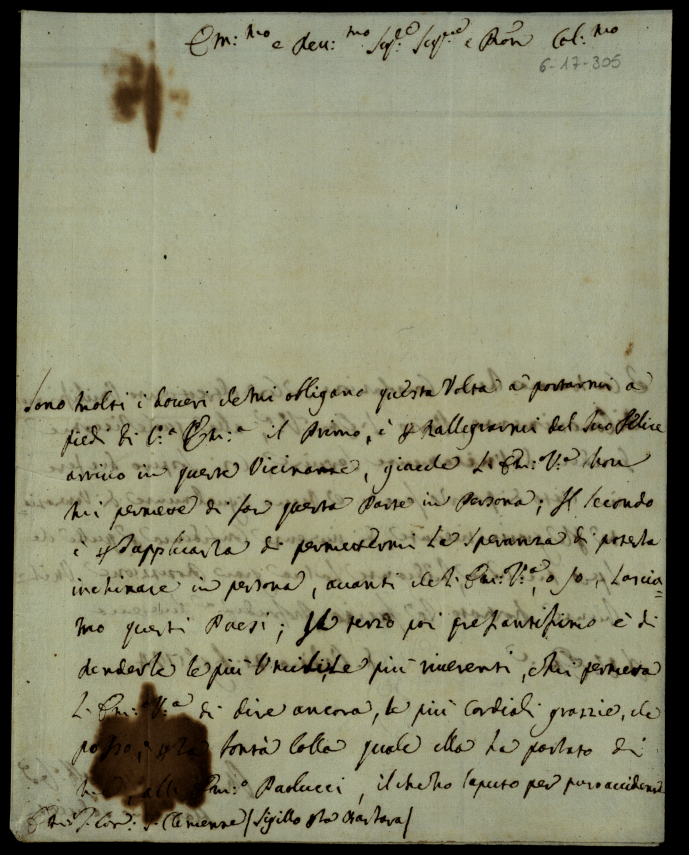 Em:mo e Rev:mo Sig:e Sig:re e Pron Col:mo
6-17-305
Sono molti i doveri che mi obligano questa Volta à portarmi a
piedi di V:a Em:a il Primo, è rallegrarmi del Suo felice
arrivo in queste Vicinanze, giache L'Em:a V:a non
mi permette di far questa Parte in Persona; Il Secondo
è supplicarla di permettermi La Speranza di poterla
inchinare in persona, avanti che L'Em:a V:a, o Io, Lascia=
mo questi Paesi; Il terzo poi prestantissimo è di
renderle le più Umili, Le più riverenti, e mi permetta
L'Em:a V:a di dire ancora, le più Cordiali grazie, che
posso, bontà colla quale ella ha parlato di
me, all' Em:o Paolucci, il che ho saputo per puro accidente
Clemente / Sigillo Barbara /